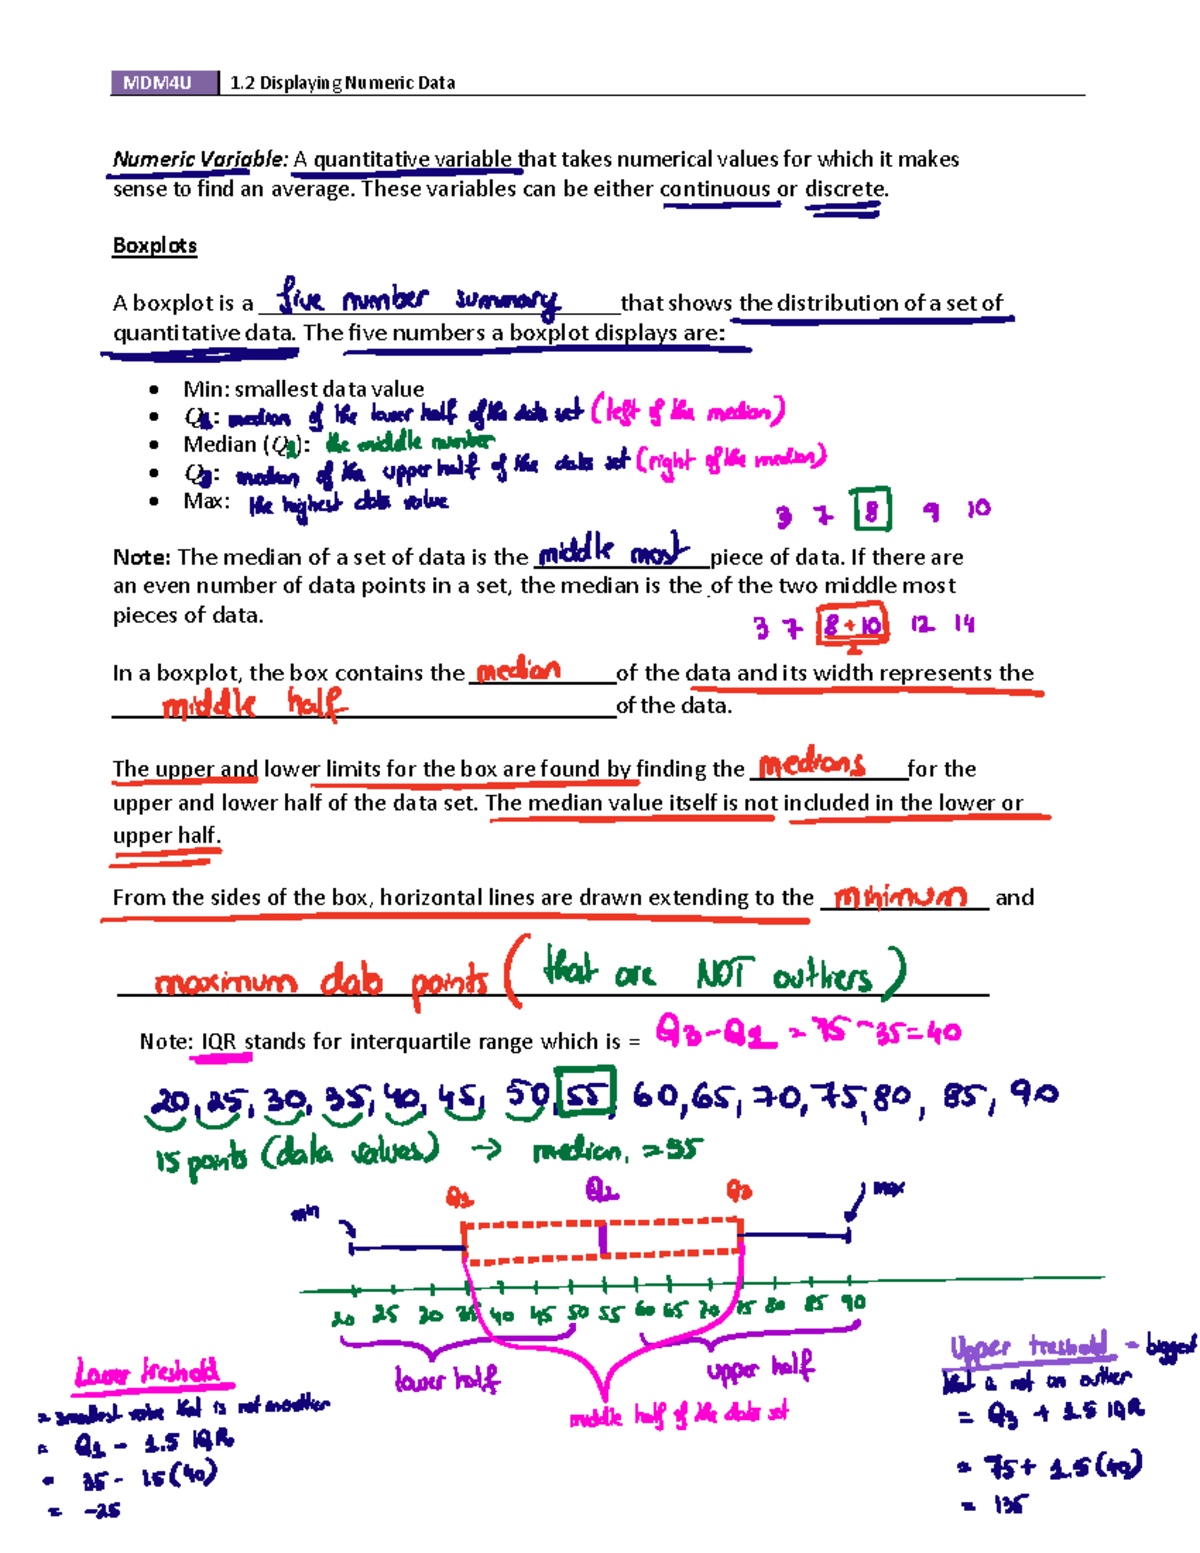 MDM4U 1.2 Displaying Numeric Data
Numeric Variable: A quantitative variable that takes numerical values for which it makes
sense to find an average. These variables can be either continuous or discrete.
Boxplots
A boxplot is a five number summary that shows the distribution of a set of
quantitative data. The five numbers a boxplot displays are:
• Min: smallest data value
• Q1: median of the lower half of the data set (left of the median)
• Median (Q2): the middle number
• Q3: median of the upper half of the data set (right of the median)
• Max: the highest data value
3 7 8 9 10
Note: The median of a set of data is the middle most piece of data. If there are
an even number of data points in a set, the median is the of the two middle most
pieces of data.
3 7 8 + 10 12 14
2
In a boxplot, the box contains the median of the data and its width represents the
middle half of the data.
The upper and lower limits for the box are found by finding the medians for the
upper and lower half of the data set. The median value itself is not included in the lower or
upper half.
From the sides of the box, horizontal lines are drawn extending to the minimum and
maximum data points (that are NOT outliers)
Note: IQR stands for interquartile range which is = Q3 - Q1 = 75 - 35 = 40
20, 25, 30, 35, 40, 45, 50, 55, 60, 65, 70, 75, 80, 85, 90
15 points (data values) → median, = 55
min Q1 Q2 Q3 max
20 25 30 35 40 45 50 55 60 65 70 75 80 85 90
lower half upper half
middle half of the data set
Lower treshold
= smallest value that is not an outlier
= Q1 - 1.5 IQR
= 35 - 1.5 (40)
= -25
Upper treshold = biggest
that is not an outlier
= Q3 + 1.5 IQR
= 75 + 1.5 (40)
= 135